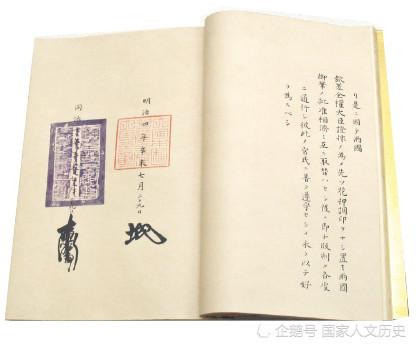 リ是ニ因テ兩國
欽差全權大臣證據ノ為メ先ツ花押調印ヲナシ置キ兩國
御筆ノ批准相濟ミ互ニ取替ハセシ後チ即チ版刻シテ各處
ニ通行シ彼此ノ官民ニ普ク遵守セシメ永ク以テ好
ヲ為スヘシ
明治四年辛未七月二十九日
同治
企鹅号 国家人文历史